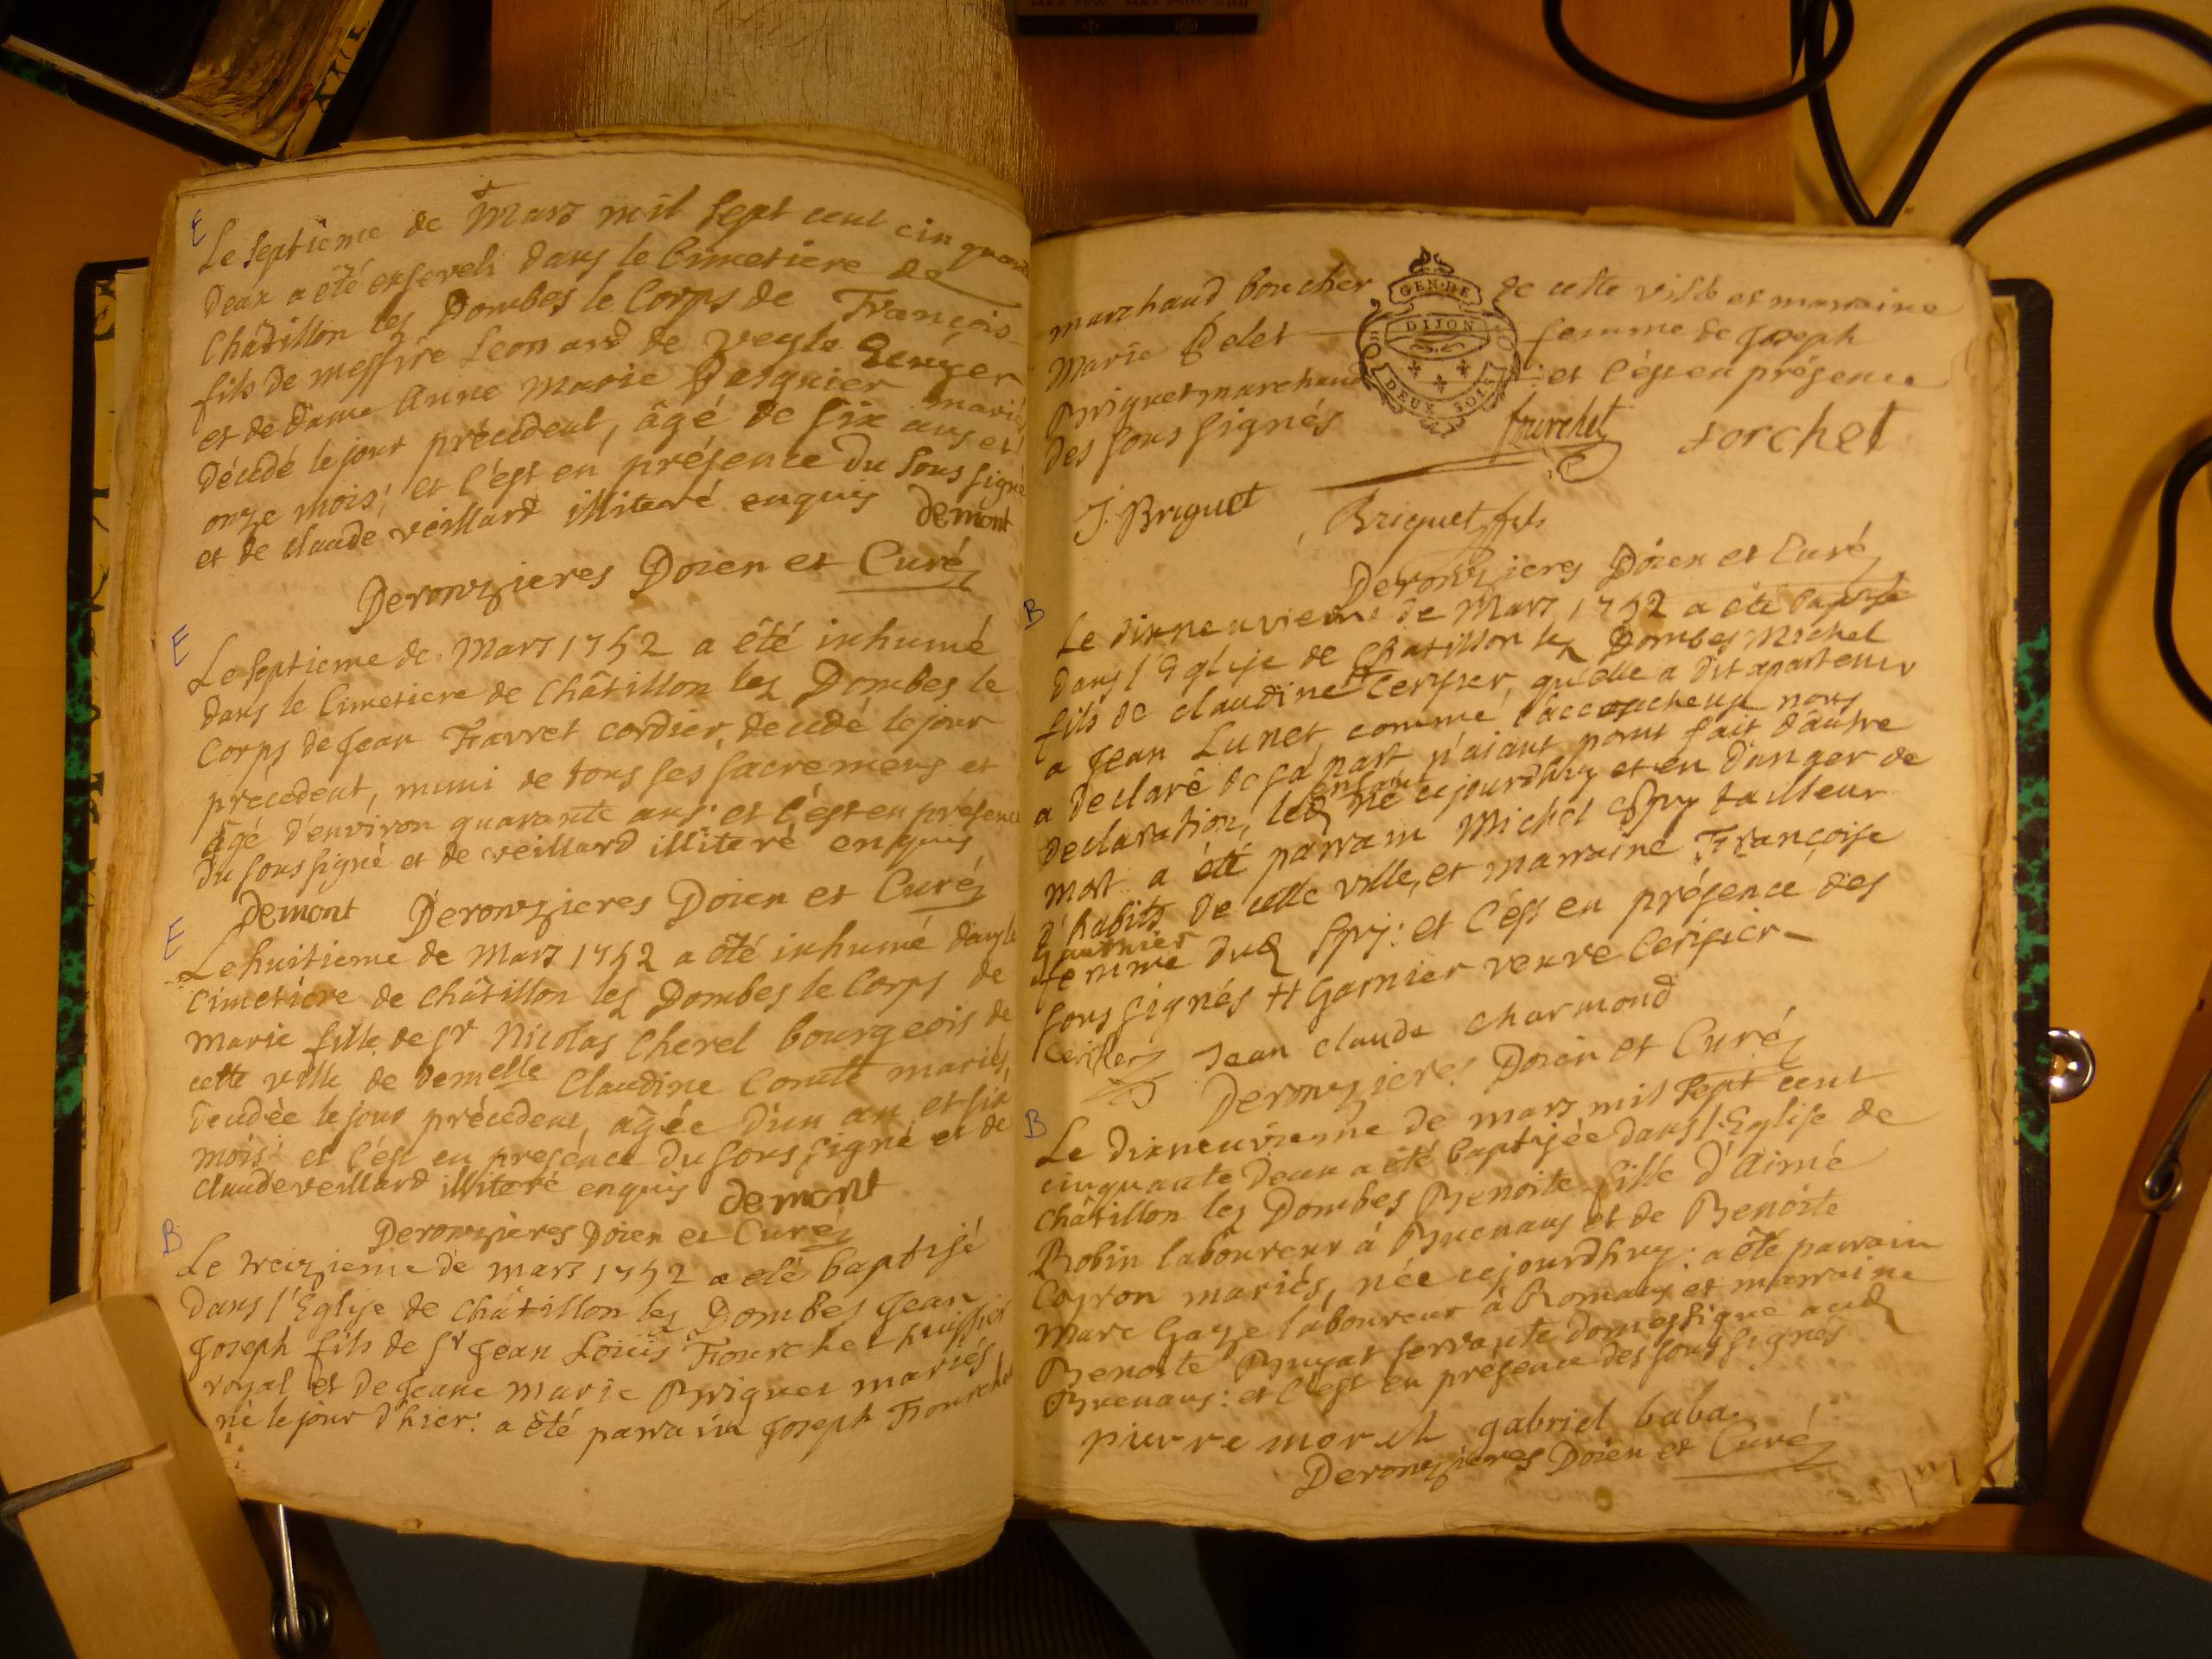 E
Le septième de Mars mil sept cent cinquante
Deux a été enseveli dans le Cimetiere de
Châtillon les Dombes le Corps de François
fils de messire Leonard de veyle
et de Dame Anne Marie Pasquier mariés
Décédé le jour précédent, âgé de six ans et
onze mois; et c'est en présence du sous signé
et de claude veillard illiteré enquis demont
Deronzieres Doien et Curé
E
Le septieme de Mars 1752 a été inhumé
dans le Cimetiere de Châtillon les Dombes le
Corps de Jean Travret cordier, decedé le jour
précédent, muni de tous ses sacremens et
âgé d'environ quarante ans: et c'est en présence
du sous signé et de veillard illiteré enquis
demont Deronzieres Doien et Curé
E
Le huitieme de Mars 1752 a été inhumé dans le
Cimetiere de Châtillon les Dombes le Corps de
Marie fille de Sr Nicolas Cherel bourgeois de
cette ville de demelle Claudine Comte mariés,
Decedée le jour précédent, âgée d'un an et six
mois: et c'est en presence du sous signé et de
claude veillard illiteré enquis demont
Deronzieres Doien et Curé
B
Le treizieme de mars 1752 a été baptisé
Dans l'Eglise de Châtillon les Dombes Jean
Joseph fils de Sr Jean Loüis Fourchet huissier
royal et de Jeane Marie Briguet mariés,
né le jour d'hier: a été parrain Joseph Fourchet
marchand boucher de cette ville et marraine
Marie femme de Joseph
Briguet marchand: et c'est en présence
des sous signés furchet forchet
J. Briguet Briguet fils
Deronzieres Doien et Curé
B
Le dixneuvieme de Mars 1752 a été baptisé
Dans l'Eglise de Chatillon les Dombes Michel
fils de claudine Cerisier, qu'elle a dit apartenir
a Jean Lunet, comme l'accoucheuse nous
a declaré de sa part n'aiant point fait d'autre
declaration, led enfan né cejourdhuy et en danger de
mort a été parrain Michel Spy tailleur
d'habits de cette ville, et marraine Françoise
Garnier
femme dud Spy: et c'est en présence des
sous signés tt Garnier veuve Cerisier
Cerisier Jean claude charmond
Deronzieres Doien et Curé
B
Le dixneuvieme de mars mil sept cent
cinquante deux a été baptisée dans l'Eglise de
Châtillon les Dombes Benoite fille d'Aimé
Robin laboureur à Buenans et de Benoite
Copron mariés, née cejourdhuy: a été parrain
Marc Gaye laboureur à Romans et marraine
Benoite Bugat servante domestique aud
Buenans: et c'est en présence des sous signés
pierre morel gabriel baba
Deronzieres Doien et Curé
GEN. DE
DIJON
DEUX SOLS